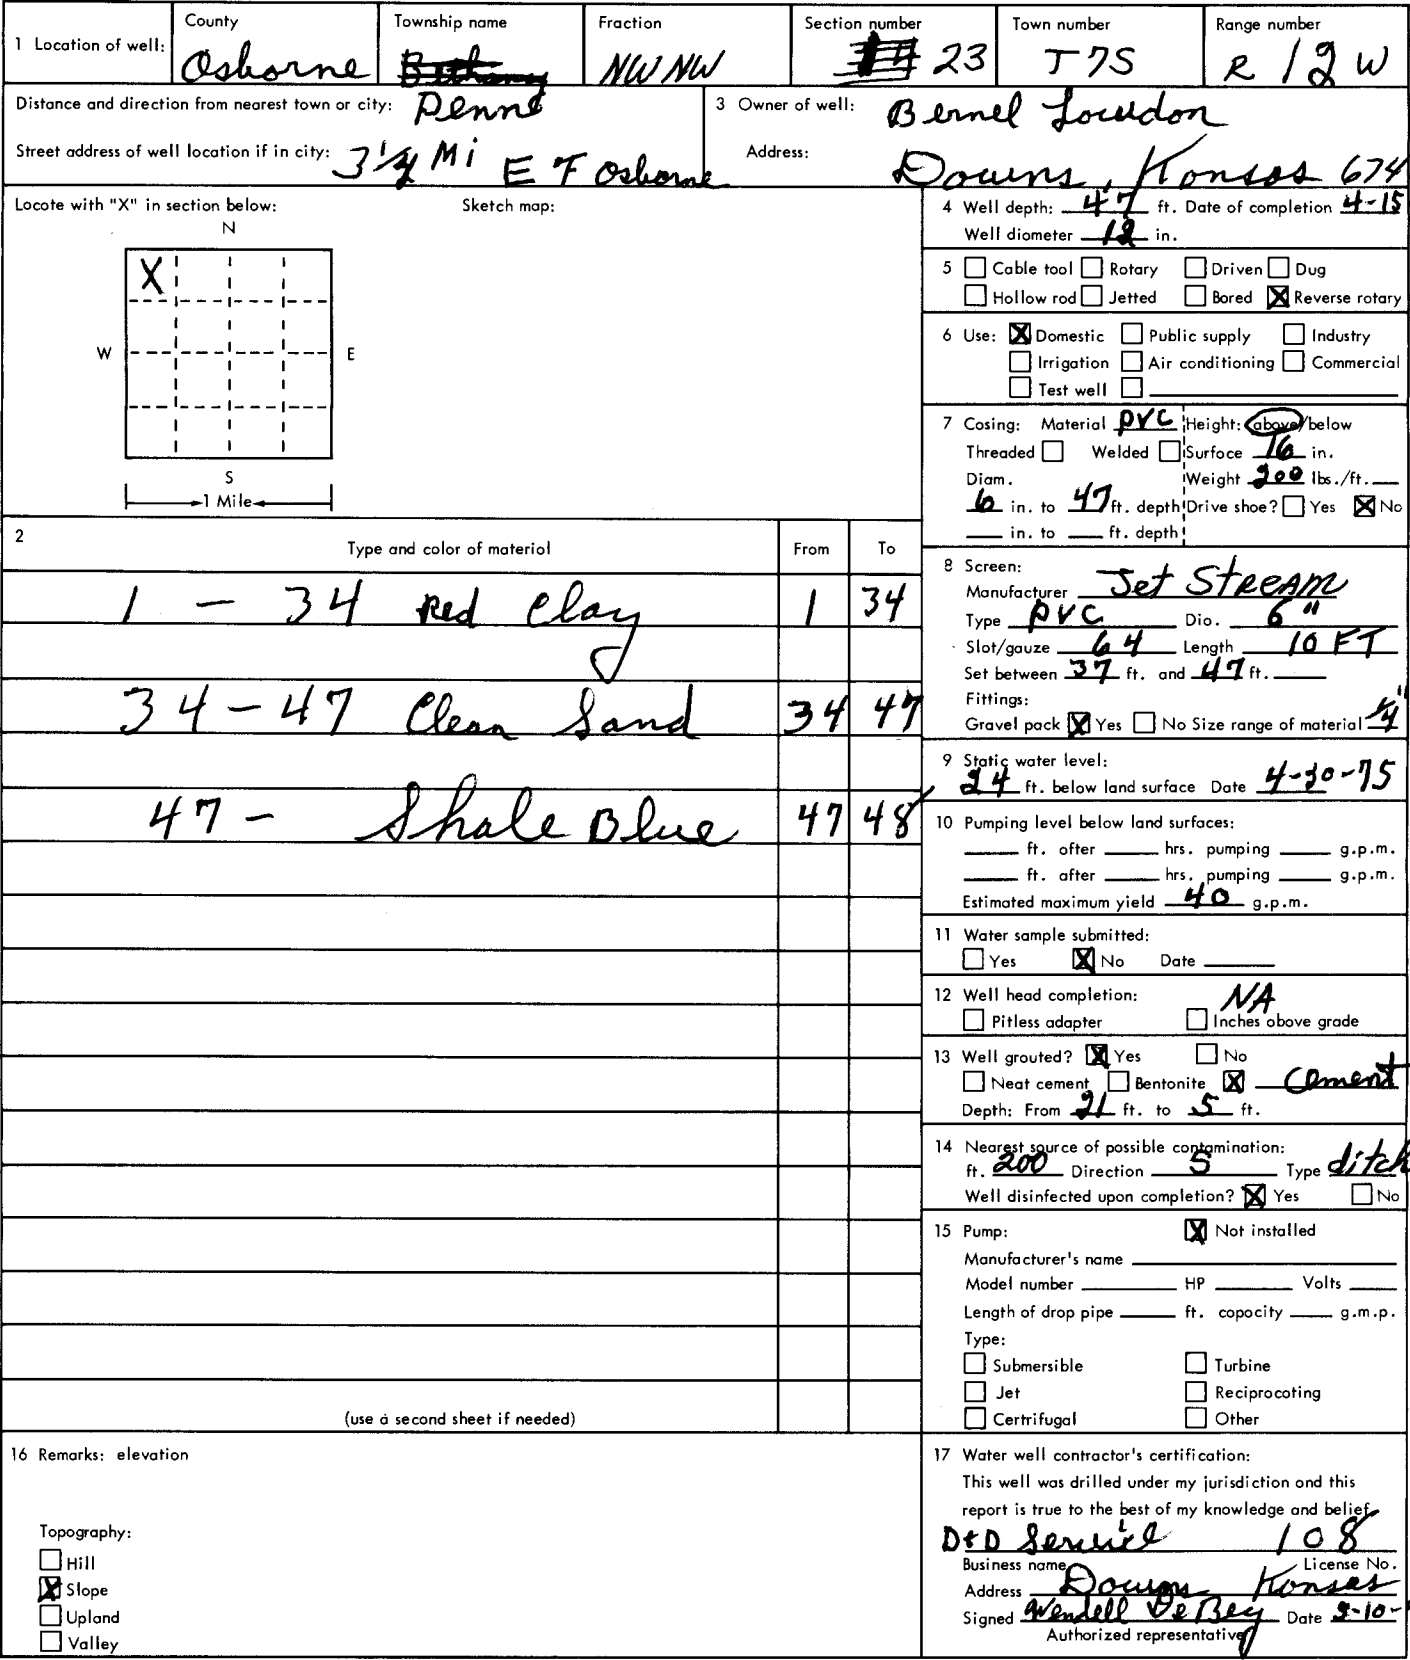 1 Location of well:
County
Osborne
Township name
Bethany
Penne
Fraction
NW NW
Section number
23
Town number
T 7S
Range number
R 12 W
Distance and direction from nearest town or city:
Street address of well location if in city: 3 1/2 Mi E F Osborne
3 Owner of well: Bernel Loudon
Address: Downs, Kansas 674
Locate with "X" in section below:
Sketch map:
N
X
W E
S
1 Mile
4 Well depth: 47 ft. Date of completion 4-15
Well diameter 12 in.
5 Cable tool Rotary Driven Dug
Hollow rod Jetted Bored X Reverse rotary
6 Use: X Domestic Public supply Industry
Irrigation Air conditioning Commercial
Test well
7 Casing: Material PVC Height: above/below
Threaded Welded Surface 16 in.
Diam. Weight 200 lbs./ft.
6 in. to 47 ft. depth Drive shoe? Yes X No
in. to ft. depth
2
Type and color of material From To
1 - 34 Red Clay 1 34
34 - 47 Clean Sand 34 47
47 - Shale Blue 47 48
(use a second sheet if needed)
8 Screen:
Manufacturer Jet Stream
Type PVC Dia. 6"
Slot/gauze 64 Length 10 FT
Set between 37 ft. and 47 ft.
Fittings:
Gravel pack X Yes No Size range of material 1/4"
9 Static water level:
24 ft. below land surface Date 4-30-75
10 Pumping level below land surfaces:
ft. after hrs. pumping g.p.m.
ft. after hrs. pumping g.p.m.
Estimated maximum yield 40 g.p.m.
11 Water sample submitted:
Yes X No Date
12 Well head completion: NA
Pitless adapter Inches above grade
13 Well grouted? X Yes No
Neat cement Bentonite X Cement
Depth: From 21 ft. to 5 ft.
14 Nearest source of possible contamination:
ft. 200 Direction S Type ditch
Well disinfected upon completion? X Yes No
15 Pump: X Not installed
Manufacturer's name
Model number HP Volts
Length of drop pipe ft. capacity g.m.p.
Type:
Submersible Turbine
Jet Reciprocating
Certrifugal Other
16 Remarks: elevation
Topography:
Hill
X Slope
Upland
Valley
17 Water well contractor's certification:
This well was drilled under my jurisdiction and this
report is true to the best of my knowledge and belief
D&D Service 108
Business name License No.
Address Downs Kansas
Signed Wendell De Bey Date 9-10-
Authorized representative